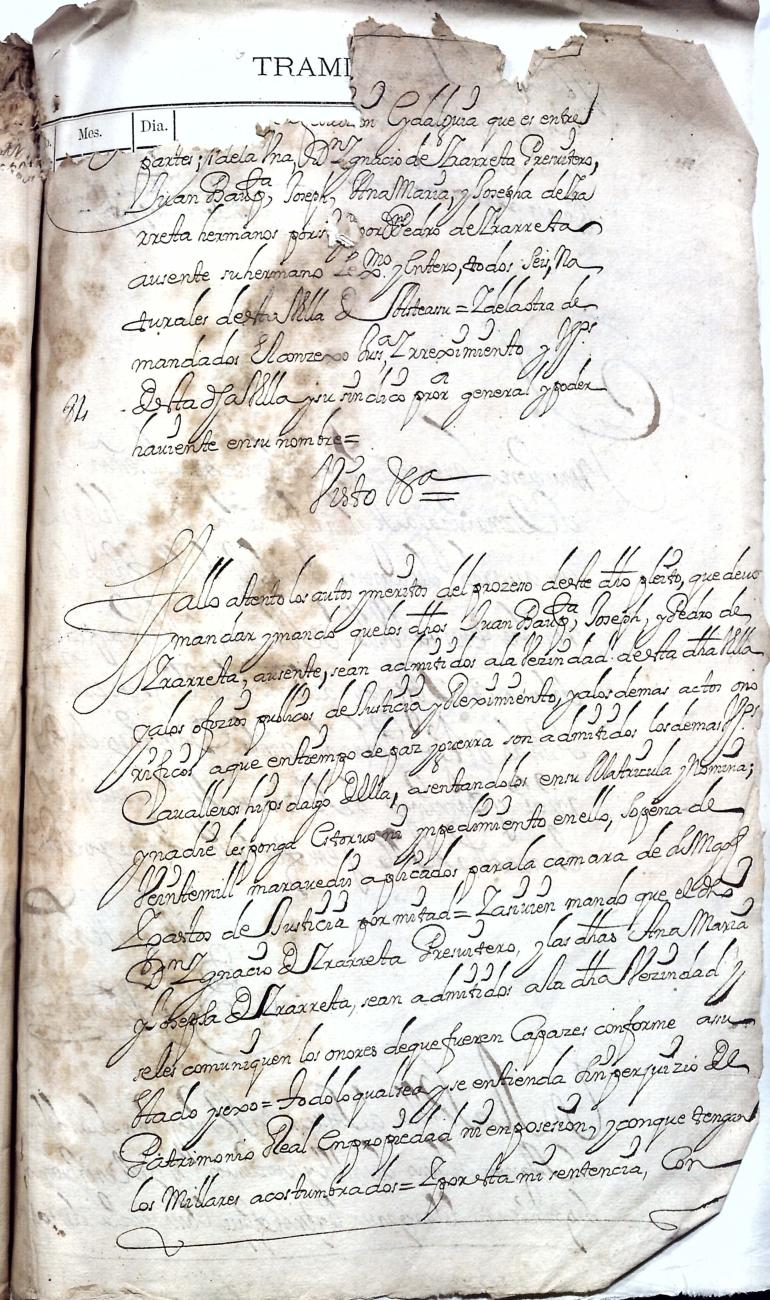 TRAMI
Mes. Dia.
Cydalguia que es entre
partes; de la Vna, Dn Ygnacio de Yrarreta Presvitero,
Juan Baupta, Joseph, Ana Maria, y Josepha de Yra
rreta hermanos por si por Dn Pedro de Yrarreta
ausente su hermano Lexmo. y Entero, todos Seis, Na
turales desta Villa de Asteasu = Y dela otra de
mandados El conzexo Justa Y rreximiento y
desta dha Villa y su sindico pror general y poder
haviente en su nombre =
24
Visto &a =
Fallo atento los autos y meritos del prozeso deste dho pleito, que devo
mandar y mando que los dhos Juan Baupta, Joseph, y Pedro de
Yrarreta, ausente, sean admitidos ala Vezindad desta dha Villa
y alos ofizios publicos de Justicia y Reximiento, y alos demas actos ono
rificos aque en tiempo de paz y guerra son admitidos los demas
Cavalleros hijos dalgo della, asentandolos en su Matricula y Nomina;
y nadie les ponga Estorvo ni ympedimiento en ello, so pena de
Veinte mill maravedis aplicados para la camara de su Magd
Gastos de Justicia por mitad = Y asi vien mando que el dho
Dn Ygnacio de Yrarreta Presvitero, y las dhas Ana Maria
y Josepha de Yrarreta, sean admitidos ala dha Vezindad y
se les comuniquen los onores de que fueren Capazes conforme asu
stado y sexo = todo lo qual sea y se entienda sin perjuizio del
Patrimonio Real En propiedad ni en posesion, y con que tengan
los Millares acostumbrados = Y por esta mi sentencia, Con